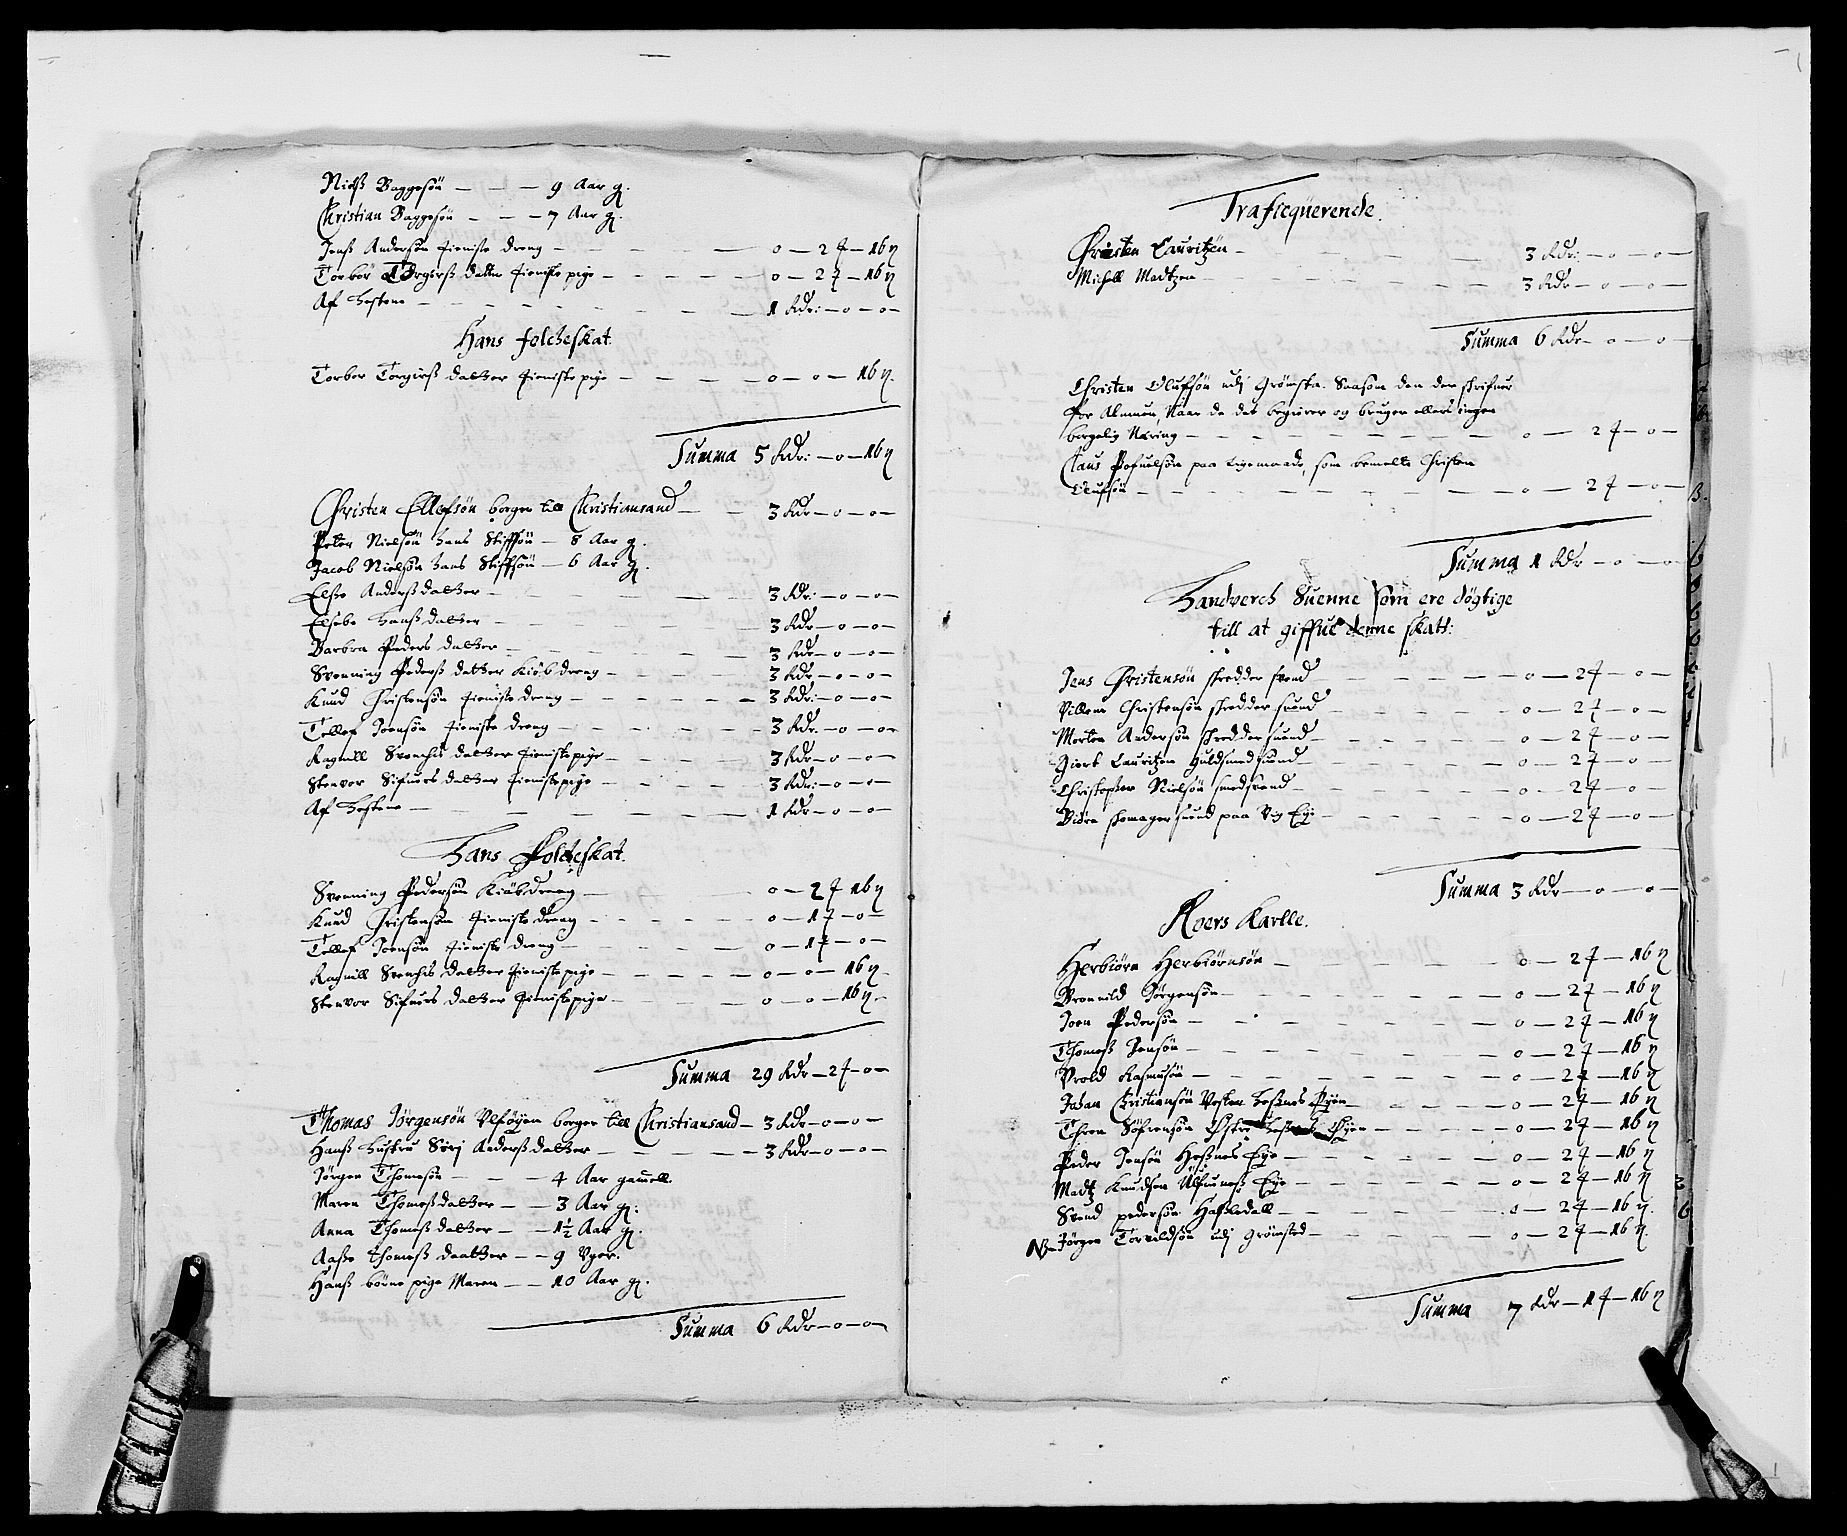 Nielß Baggesøn — — — 9 Aar g.
Christian Baggesøn — — — 7 Aar g.
Jenß Andersøn tieniste dreng — — — 0 — 2 ƒ — 16 ẞ
Torbor Torgirß datter tieniste pige — — — 0 — 2 ƒ — 16 ẞ
Af hestene — — — 1 Rdr: — 0 — 0 —
Hans folcheskat.
Torbor Torgirß datter tieniste pige — — — 0 — 0 — 16 ẞ.
Summa 5 Rdr: — 0 — 16 ẞ
Christen Ellefsøn borger till Christiansand — — 3 Rdr — 0 — 0 —
Peter Nielsøn hans Stiffsøn — 8 Aar g.
Jacob Nielsøn hans Stiffsøn — 6 Aar g.
Elße Anderß datter — — — 3 Rdr: — 0 — 0 —
Elsebe Hanß datter — — — 3 Rdr — 0 — 0 —
Barbra Peders datter — — — 3 Rdr — 0 — 0 —
Svenning Pederß datter Kiøb dreng — — — 3 Rdr — 0 — 0 —
Knud Christensøn tieniste dreng — — — 3 Rdr: — 0 — 0 —
Tellef Joensøn tieniste dreng — — — 3 Rdr. — 0 — 0 —
Ragnill Svenchis datter tieniste pige — — — 3 Rdr — 0 — 0 —
Stenvor Sifuers datter tieniste pige — — — 3 Rdr: — 0 — 0 —
Af hestene — — — 1 Rdr — 0 — 0 —
Hans Folcheskat.
Svenning Pedersøn Kiøbdreng — — — 0 — 2 ƒ 16 ẞ
Knud Christensøn tieniste dreng — — — 0 — 1 ƒ — 0 —
Tellef Joensøn tieniste dreng — — — 0 — 1 ƒ — 0 —
Ragnill Svenchis datter tieniste pige — — — 0 — 0 — 16 ẞ
Stenvor Sifuers datter tieniste pige — — — 0 — 0 — 16 ẞ
Summa 29 Rdr — 2 ƒ — 0 —
Thomas Jørgensøn Ulføyen borger till Christiansand — 3 Rdr — 0 — 0 —
Hanß hustru Siri Anderß datter — — — 3 Rdr — 0 — 0 —
Jørgen Thomesøn — — — 4 Aar gamell.
Maren Thomeßdatter — — 3 Aar g:
Anna Thomeß datter — — 1½ Aar g.
Aaße Thomeß daatter — — 9 Uger.
Hanß børne pige Maren — — 10 Aar g.
Summa 6 Rdr — 0 — 0 —
Traficqüerende.
Christen Lauritzen — — — 3 Rdr: — 0 — 0 —
Michell Madtzen — — — 3 Rdr — 0 — 0 —
Summa 6 Rdr — 0 — 0 —
Christen Olufsøn udj Grømsta. Saasom den der schrifuer
for Almuen, Naar de det begierer og bruger ellers ingen
borgelig Næring — — — 0 — 2 ƒ — 0 —
Claus Pofuelsøn paa ligemaade, som bemelte Christen
Olufsøn — — — 0 — 2 ƒ — 0 —
Summa 1 Rdr — 0 — 0
Handverch Suenne som ere døgtige
till at giffue denne skatt:
Jens Christensøn skredder svend — — — 0 — 2 ƒ — 0 —
Villem Christensøn skredder suend — — — 0 — 2 ƒ — 0 —
Morten Andersøn skredder suend — — — 0 — 2 ƒ — 0 —
Giert Lauritzen Guldsmed suend — — — 0 — 2 ƒ — 0 —
Christopher Nielsøn smedsvend — — — 0 — 2 ƒ — 0 —
Biørn skomager suend paa Eye — — — 0 — 2 ƒ — 0 —
Summa 3 Rdr — 0 — 0 —
Roers Karlle.
Herbiørn Herbiørnsøn — — — 0 — 2 ƒ — 16 ẞ
Bronnild Jørgensøn — — — 0 — 2 ƒ — 16 ẞ
Joen Pedersøn — — — 0 — 2 ƒ — 16 ẞ
Thomeß Jensøn — — — 0 — 2 ƒ — 16 ẞ
Vrold Rasmusøn — — — 0 — 2 ƒ — 16 ẞ
Johan Christiansøn Vester Heßnes Øyen — — — 0 — 2 ƒ — 16 ẞ
Thron Søfrensøn Øster Øyen — — — 0 — 2 ƒ — 16 ẞ
Peder Jensøn Heßnes Eye — — — 0 — 2 ƒ — 16 ẞ
Madtz Knudsøn Eye — — — 0 — 2 ƒ — 16 ẞ
Svend pedersøn Hasledall — — — 0 — 2 ƒ — 16 ẞ.
Jørgen Torvildsøn udj Grømsted — — — 0 — 2 ƒ — 16 ẞ.
Summa 7 Rdr — 1 ƒ — 16 ẞ